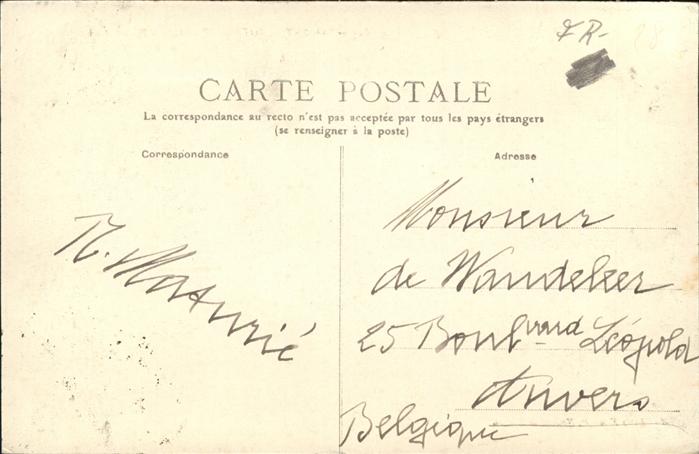 FR-
CARTE POSTALE
La correspondance au recto n'est pas acceptée par tous les pays étrangers
(se renseigner à la poste)
Correspondance
Adresse
Monsieur
de Wandeleer
25 Boulvard Léopold
Anvers
Belgique